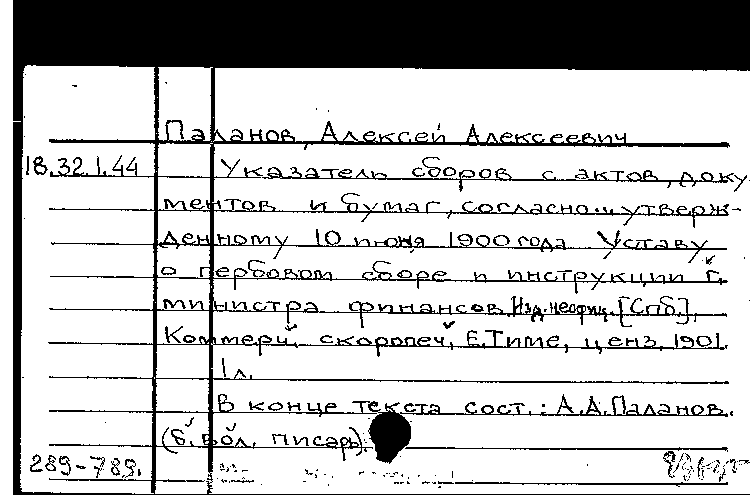 Паланов, Алексей Алексеевич
18.32.1.44 Указатель сборов с актов, доку-
ментов и бумаг, согласно утверж-
денному 10 июня 1900 года Уставу
о гербовом сборе и инструкции г.
министра финансов. Изд. неофиц. [Спб.],
Коммерч. скоропеч. Е. Тиме, ценз. 1901.
1 л.
В конце текста сост.: А.А. Паланов.
(б. вол. писарь).
289-789.